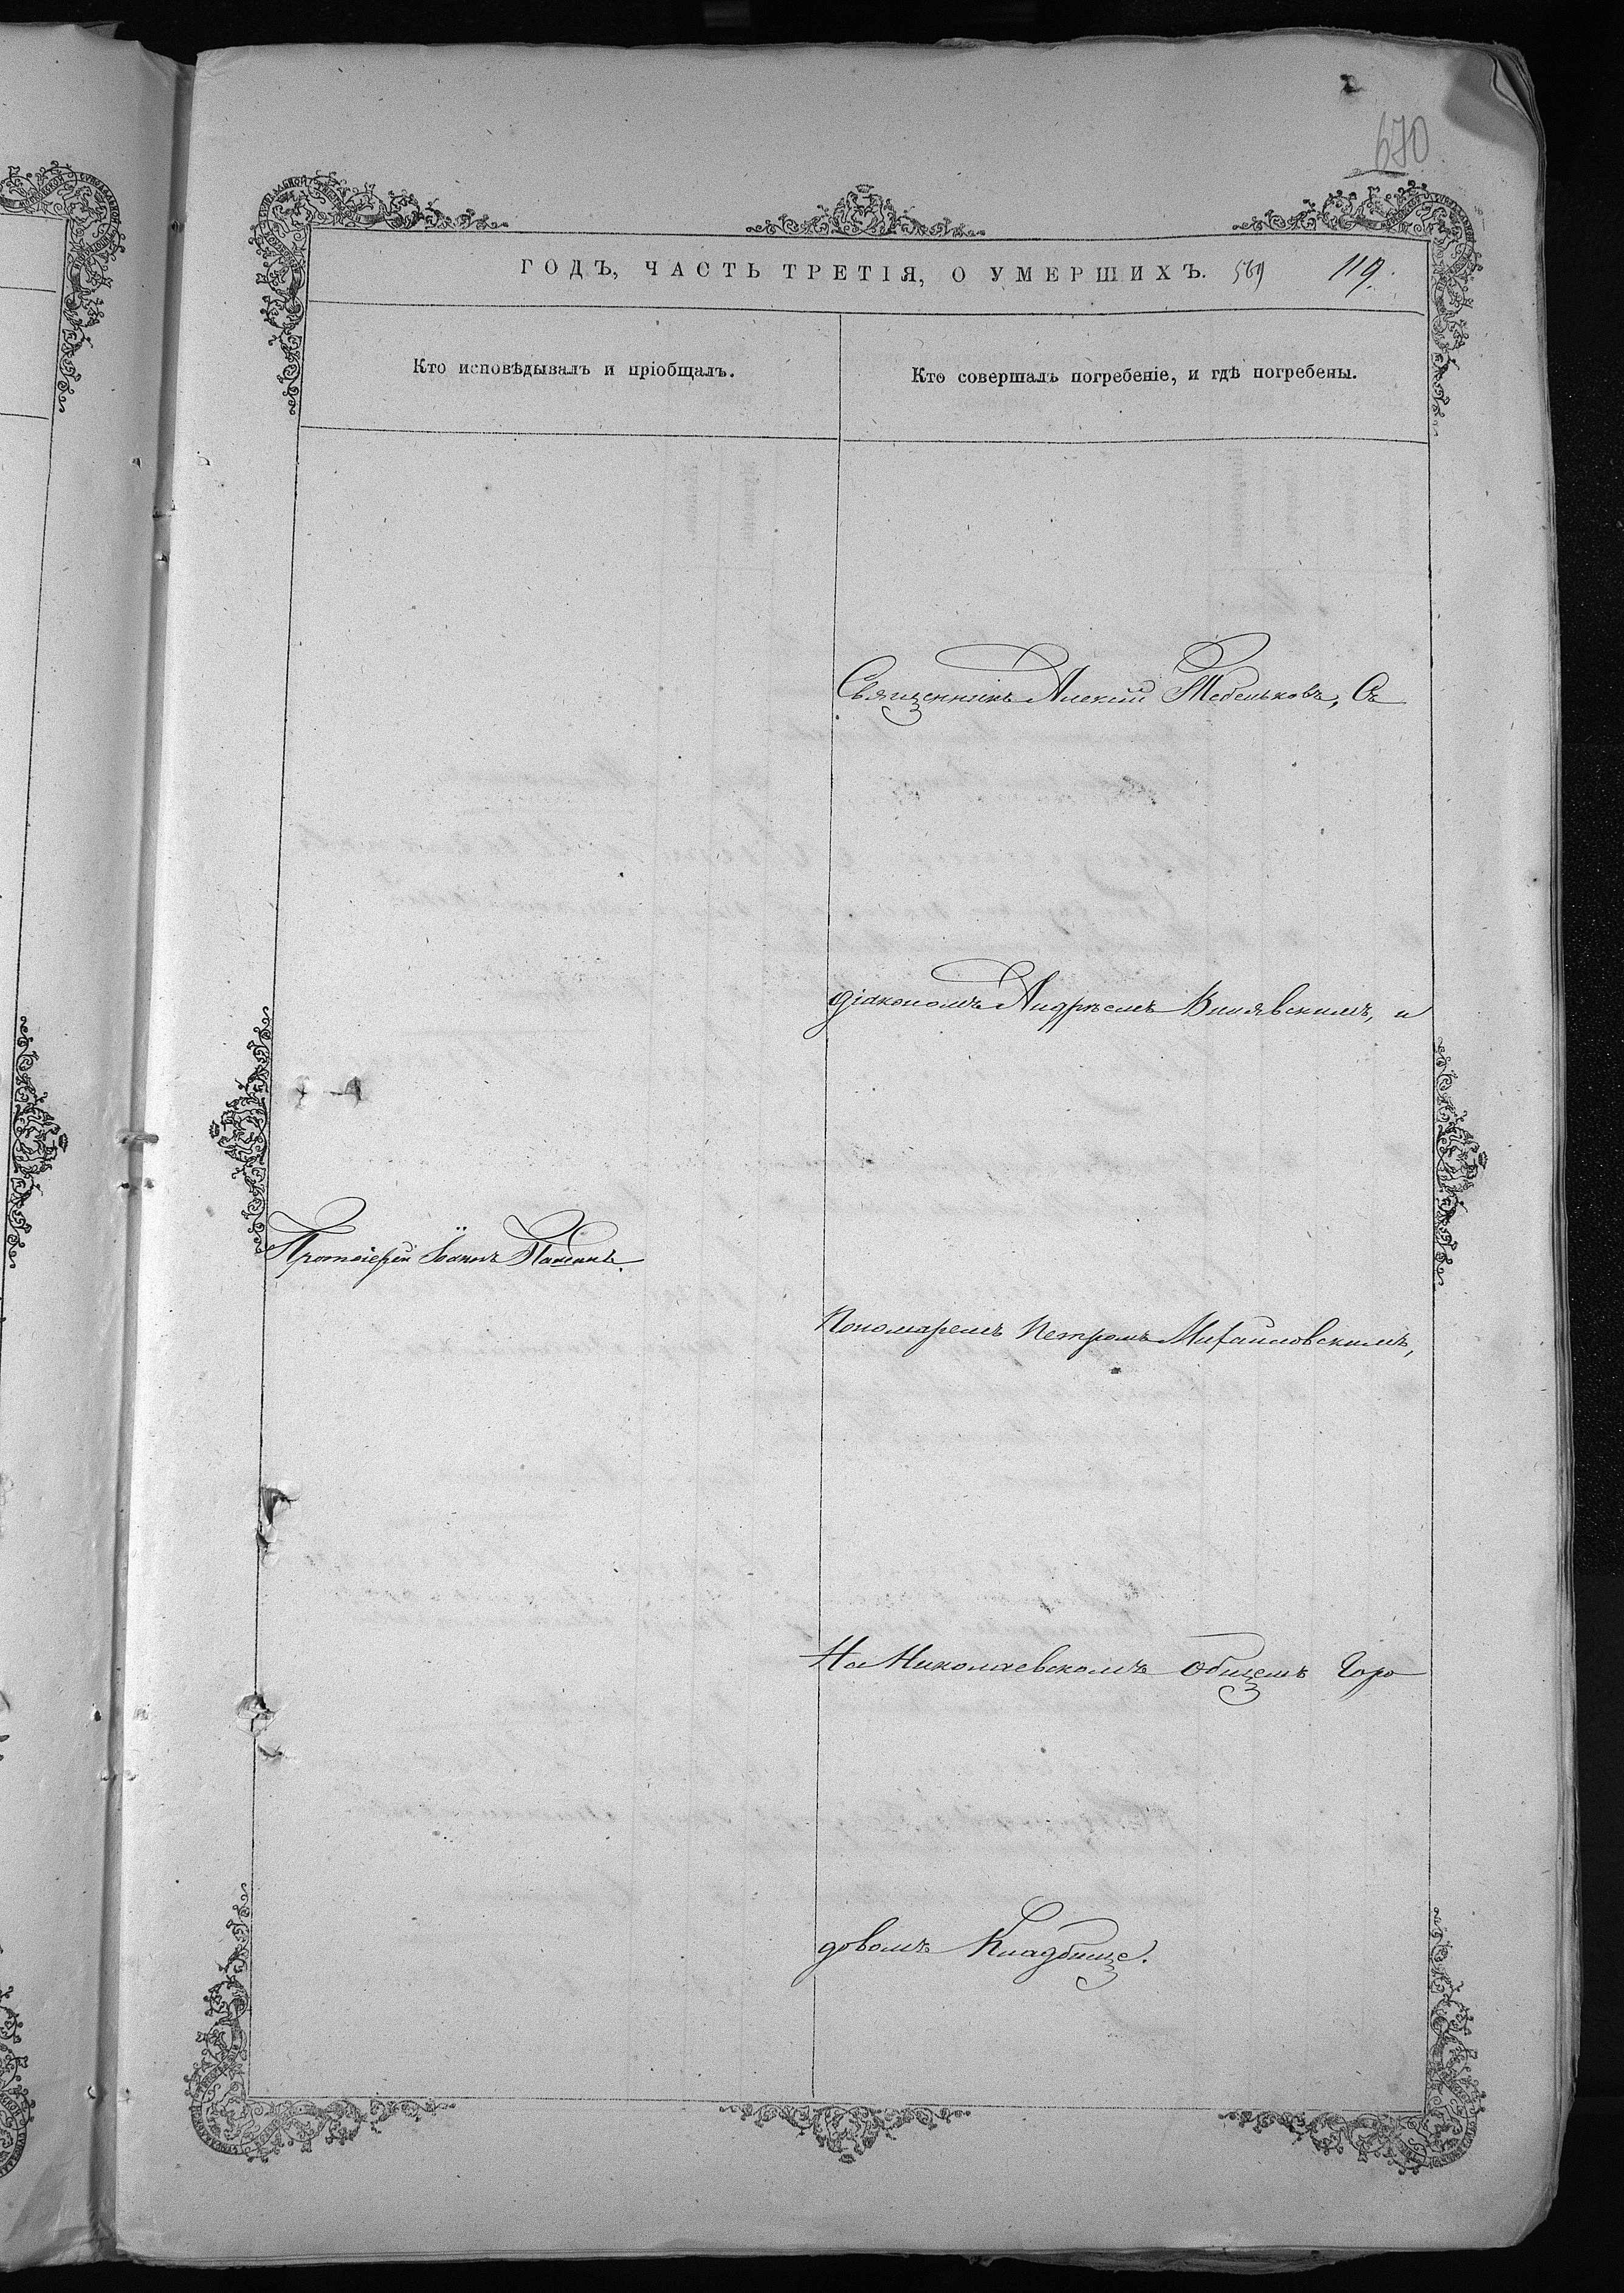 670
ГОДЪ, ЧАСТЬ ТРЕТІЯ, О УМЕРШИХЪ. 569 119.
Кто исповѣдывалъ и пріобщалъ.
Кто совершалъ погребеніе, и гдѣ погребены.
Священникъ Алексій Тебеньковъ, Съ
діакономъ Андреемъ Вилявскимъ, и
Протоіерей Іоаннъ
Пономаремъ Петромъ Михайловскимъ,
На Николаевскомъ Общемъ Горо
довомъ Кладбище.